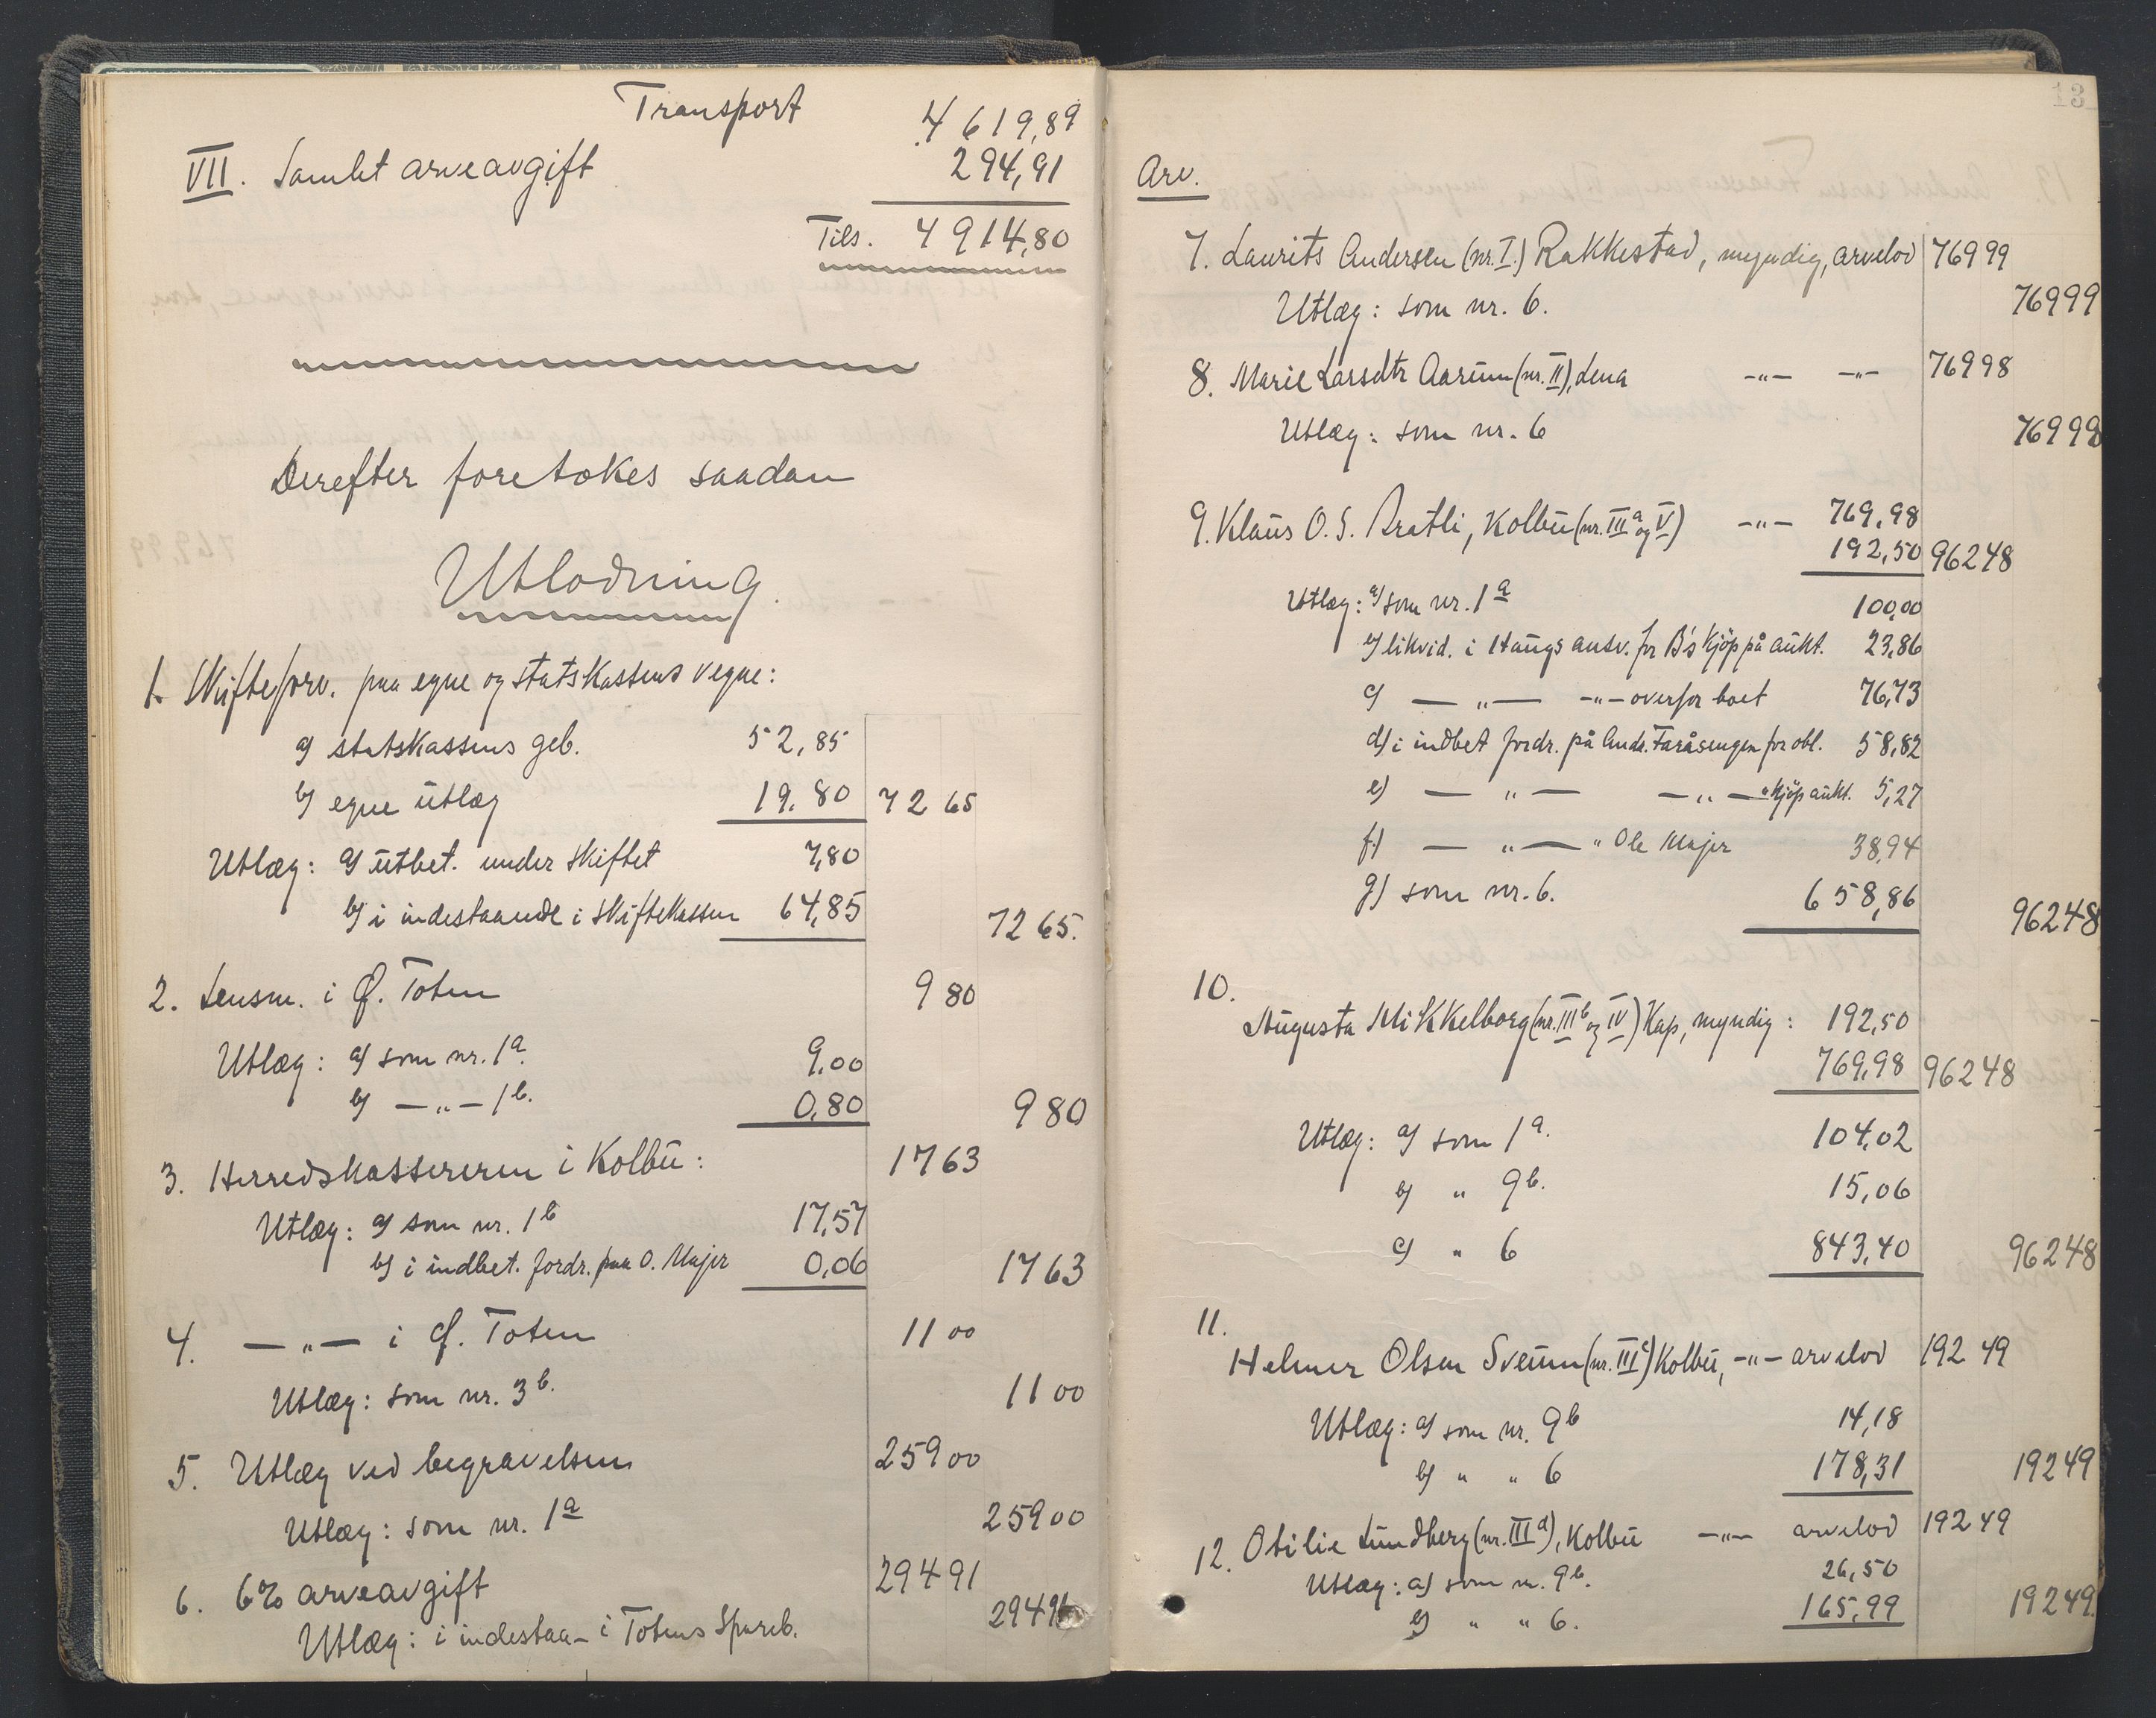 Transport 4 619,89
VII. Samlet arveavgift 294,91
Tils. 4 914,80
Derefter foretokes saadan
Utlodning.
1. Skifteforv. paa egne og statskassens vegne:
a) statskassens geb. 52,85
b) egne utlæg 19,80 72 65
Utlæg: a) utbet. under skiftet 7,80
b) i indestaaende i skiftekassen 64,85 72 65.
2. Lensm. i Ø. Toten 9 80
Utlæg: a) som nr. 1a. 9,00
b) —„— 1b. 0,80 9 80
3. Herredskassereren i Kolbu: 17 63
Utlæg: a) som nr. 1b 17,57
b) i indbet. fordr. paa O. Majer 0,06 17 63
4. —„— i Ø. Toten 11 00
Utlæg: som nr. 3b. 11 00
5. Utlæg ved begravelsen 259 00
Utlæg: som nr. 1a 259 00
6. 6% arveavgift 294 91
Utlæg: i indestaa– i Totens Spareb. 294 91
13
Arv.
7. Laurits Andersen (nr. I.) Rakkestad, myndig, arvelod 769 99
Utlæg: som nr. 6. 769 99
8. Marie Larsdtr Aarum (nr. II), Lena —„— —„— 769 98
Utlæg: som nr. 6 769 98
9. Klaus O. S. Bratli, Kolbu (nr. IIIa og V) —„— 769,98
192,50 962 48
Utlæg: a) som nr. 1a 100,00
b) likvid. i Haugs ansv. for B's kjöp på aukt. 23,86
c) —„— —„— overfor boet 76,73
d) i indbet fordr. på Andr. Faråsengen for obl. 58,82
e) —„— —„— " kjöp aukt. 5,27
f.) —„— " Ole Majer 38,94
g) som nr. 6. 658,86 962 48
10.
Augusta Mikkelborg (nr. IIIb og IV) Kap, myndig: 192,50
769,98 962 48
Utlæg: a) som 1a. 104,02
b) " 9b. 15,06
c) " 6 843,40 962 48
11.
Helmer Olsen Sveum (nr. IIIc) Kolbu, —„— arvelod 192 49
Utlæg: a) som nr. 9b 14,18
b) " " 6 178,31 192 49
12. Otilie Lundberg (nr. IIId), Kolbu —„— arvelod 192 49
Utlæg: a) som nr. 9b. 26,50
b) " " 6. 165,99 192 49.